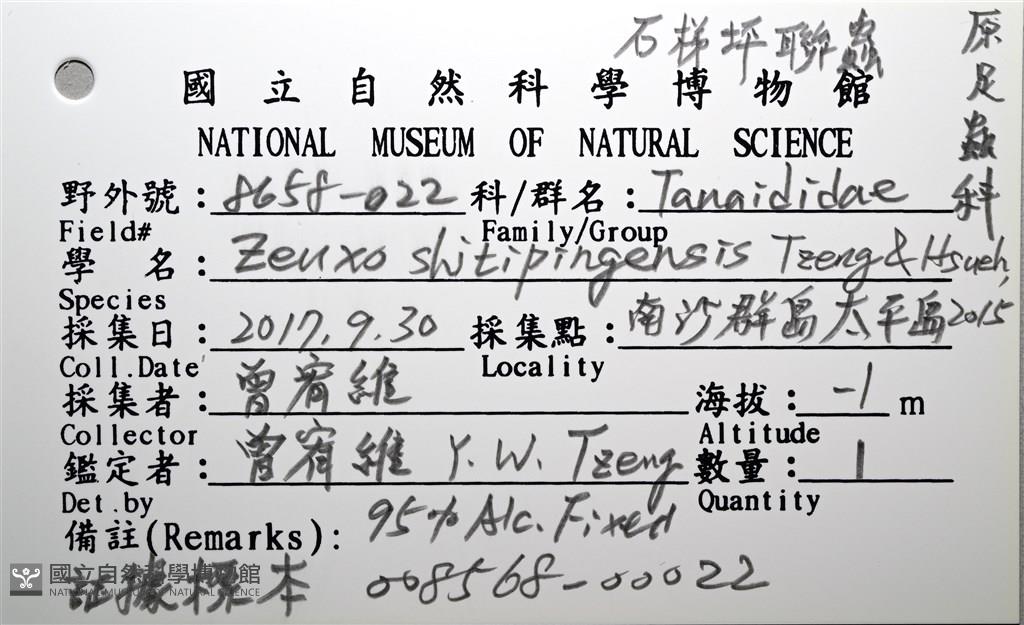 石梯坪聯蟲
原足蟲科
國立自然科學博物館
NATIONAL MUSEUM OF NATURAL SCIENCE
野外號：8658-022 科/群名：Tanaididae
Field# Family/Group
學名：Zeuxo shitipingensis Tzeng & Hsueh, 2015
Species
採集日：2017.9.30 採集點：南沙群島太平島
Coll.Date Locality
採集者：曾宥維 海拔：-1 m
Collector Altitude
鑑定者：曾宥維 Y. W. Tzeng 數量：1
Det.by Quantity
備註(Remarks): 95% Alc. Fixed
證據標本 008568-00022
國立自然科學博物館
NATIONAL MUSEUM OF NATURAL SCIENCE